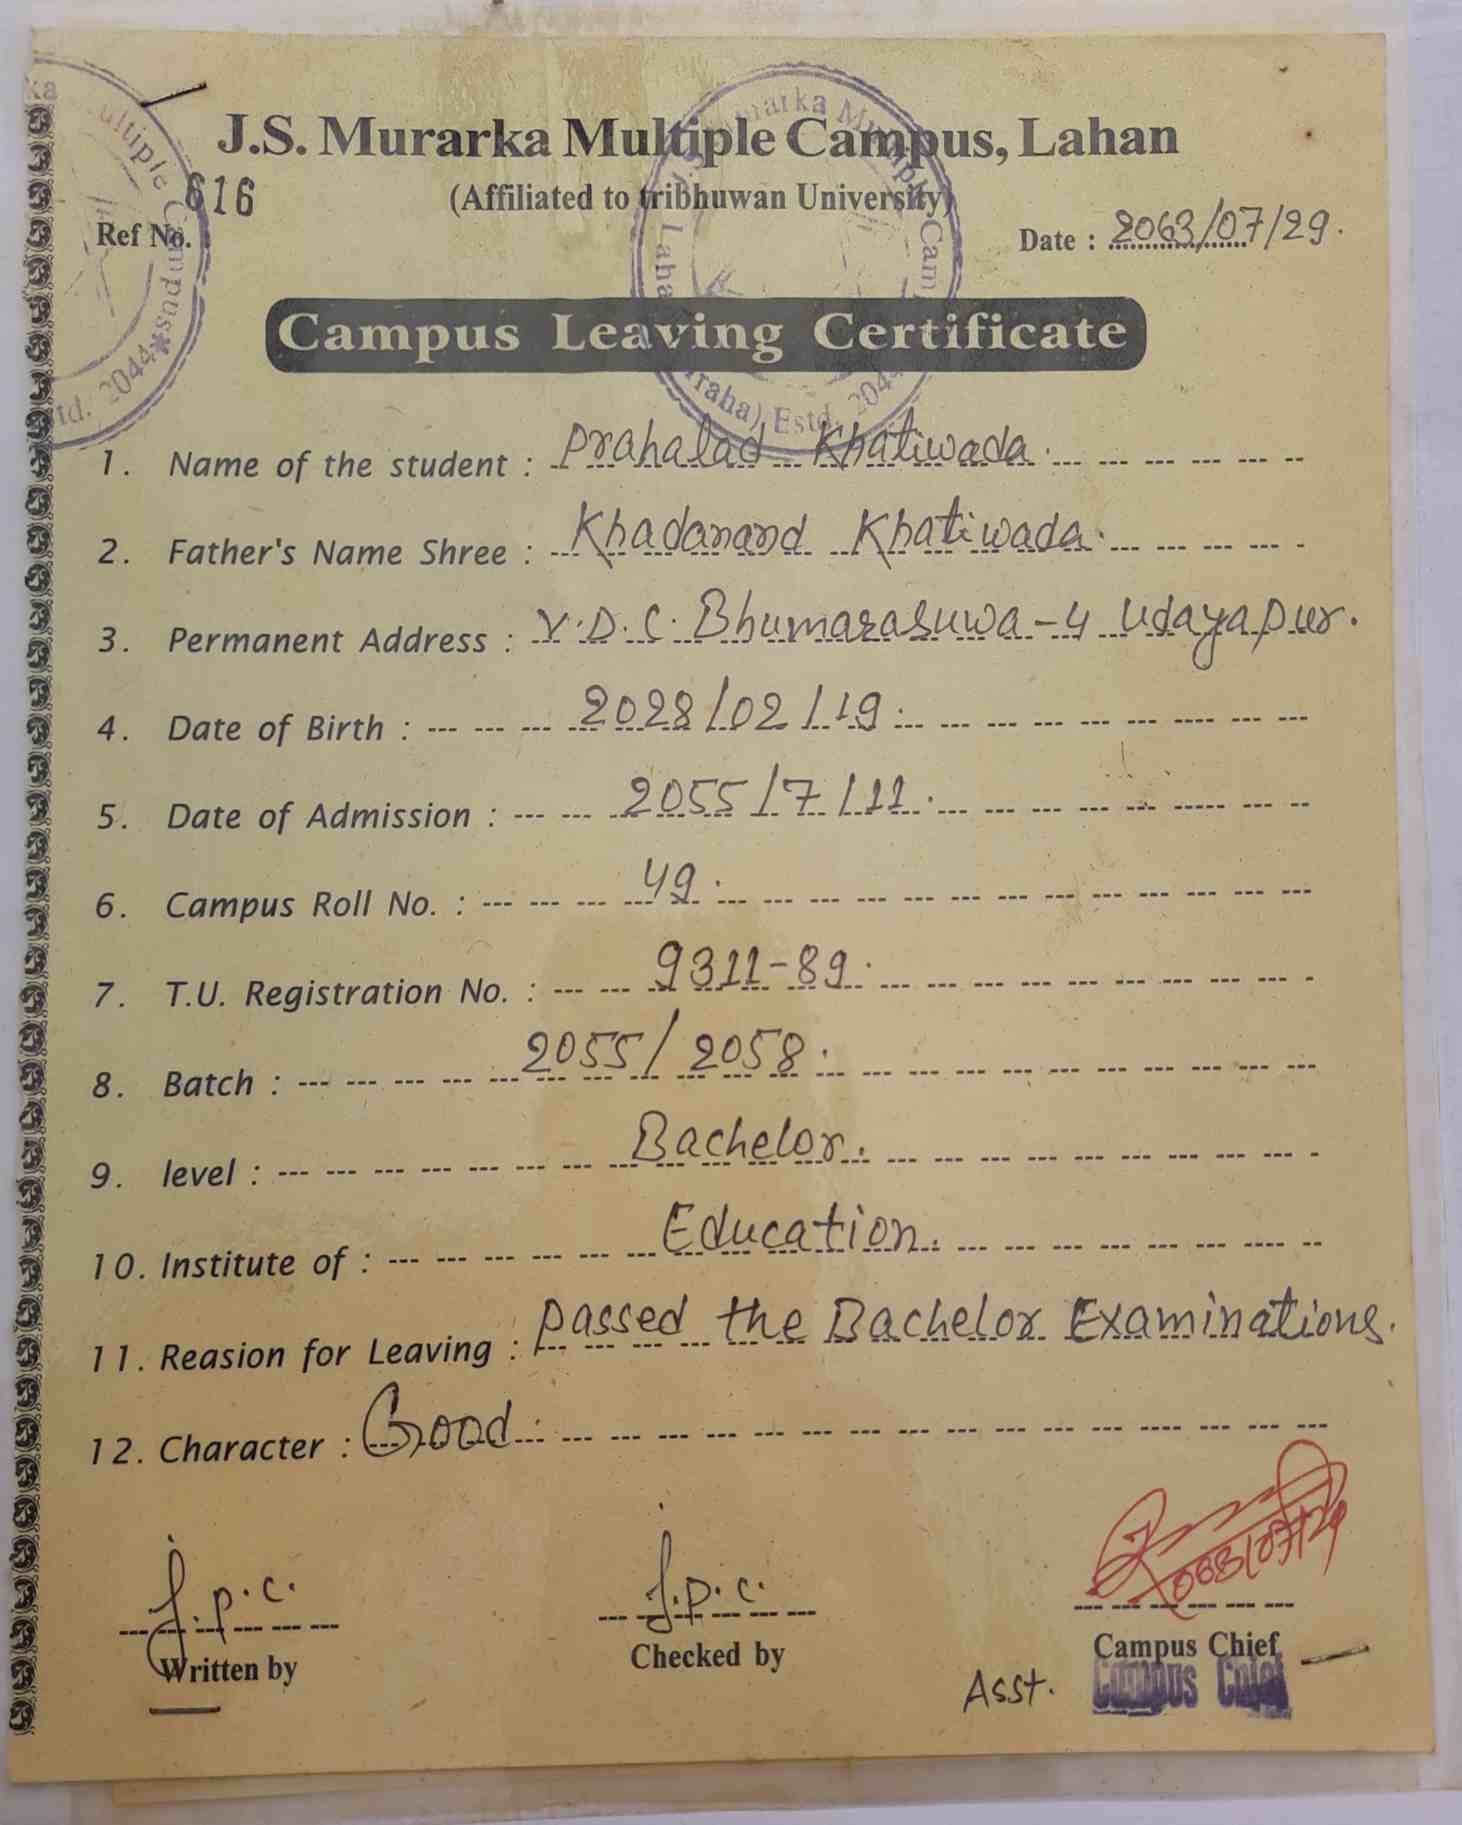 J.S. Murarka Multiple Campus, Lahan
(Affiliated to tribhuwan University)
616
Ref No.
Date : 2063/07/29.
Campus Leaving Certificate
1. Name of the student : Prahalad Khatiwada.
2. Father's Name Shree : Khadanand Khatiwada.
3. Permanent Address : V.D.C. Bhumarasuwa-4 Udayapur.
4. Date of Birth : 2028/02/19.
5. Date of Admission : 2055/7/11.
6. Campus Roll No. : 49.
7. T.U. Registration No. : 9311-89.
8. Batch : 2055/2058.
9. level : Bachelor.
10. Institute of : Education.
11. Reasion for Leaving : passed the Bachelor Examinations.
12. Character : Good.
J.p.c.
Written by
J.p.c.
Checked by
Campus Chief
Asst. Campus Chief